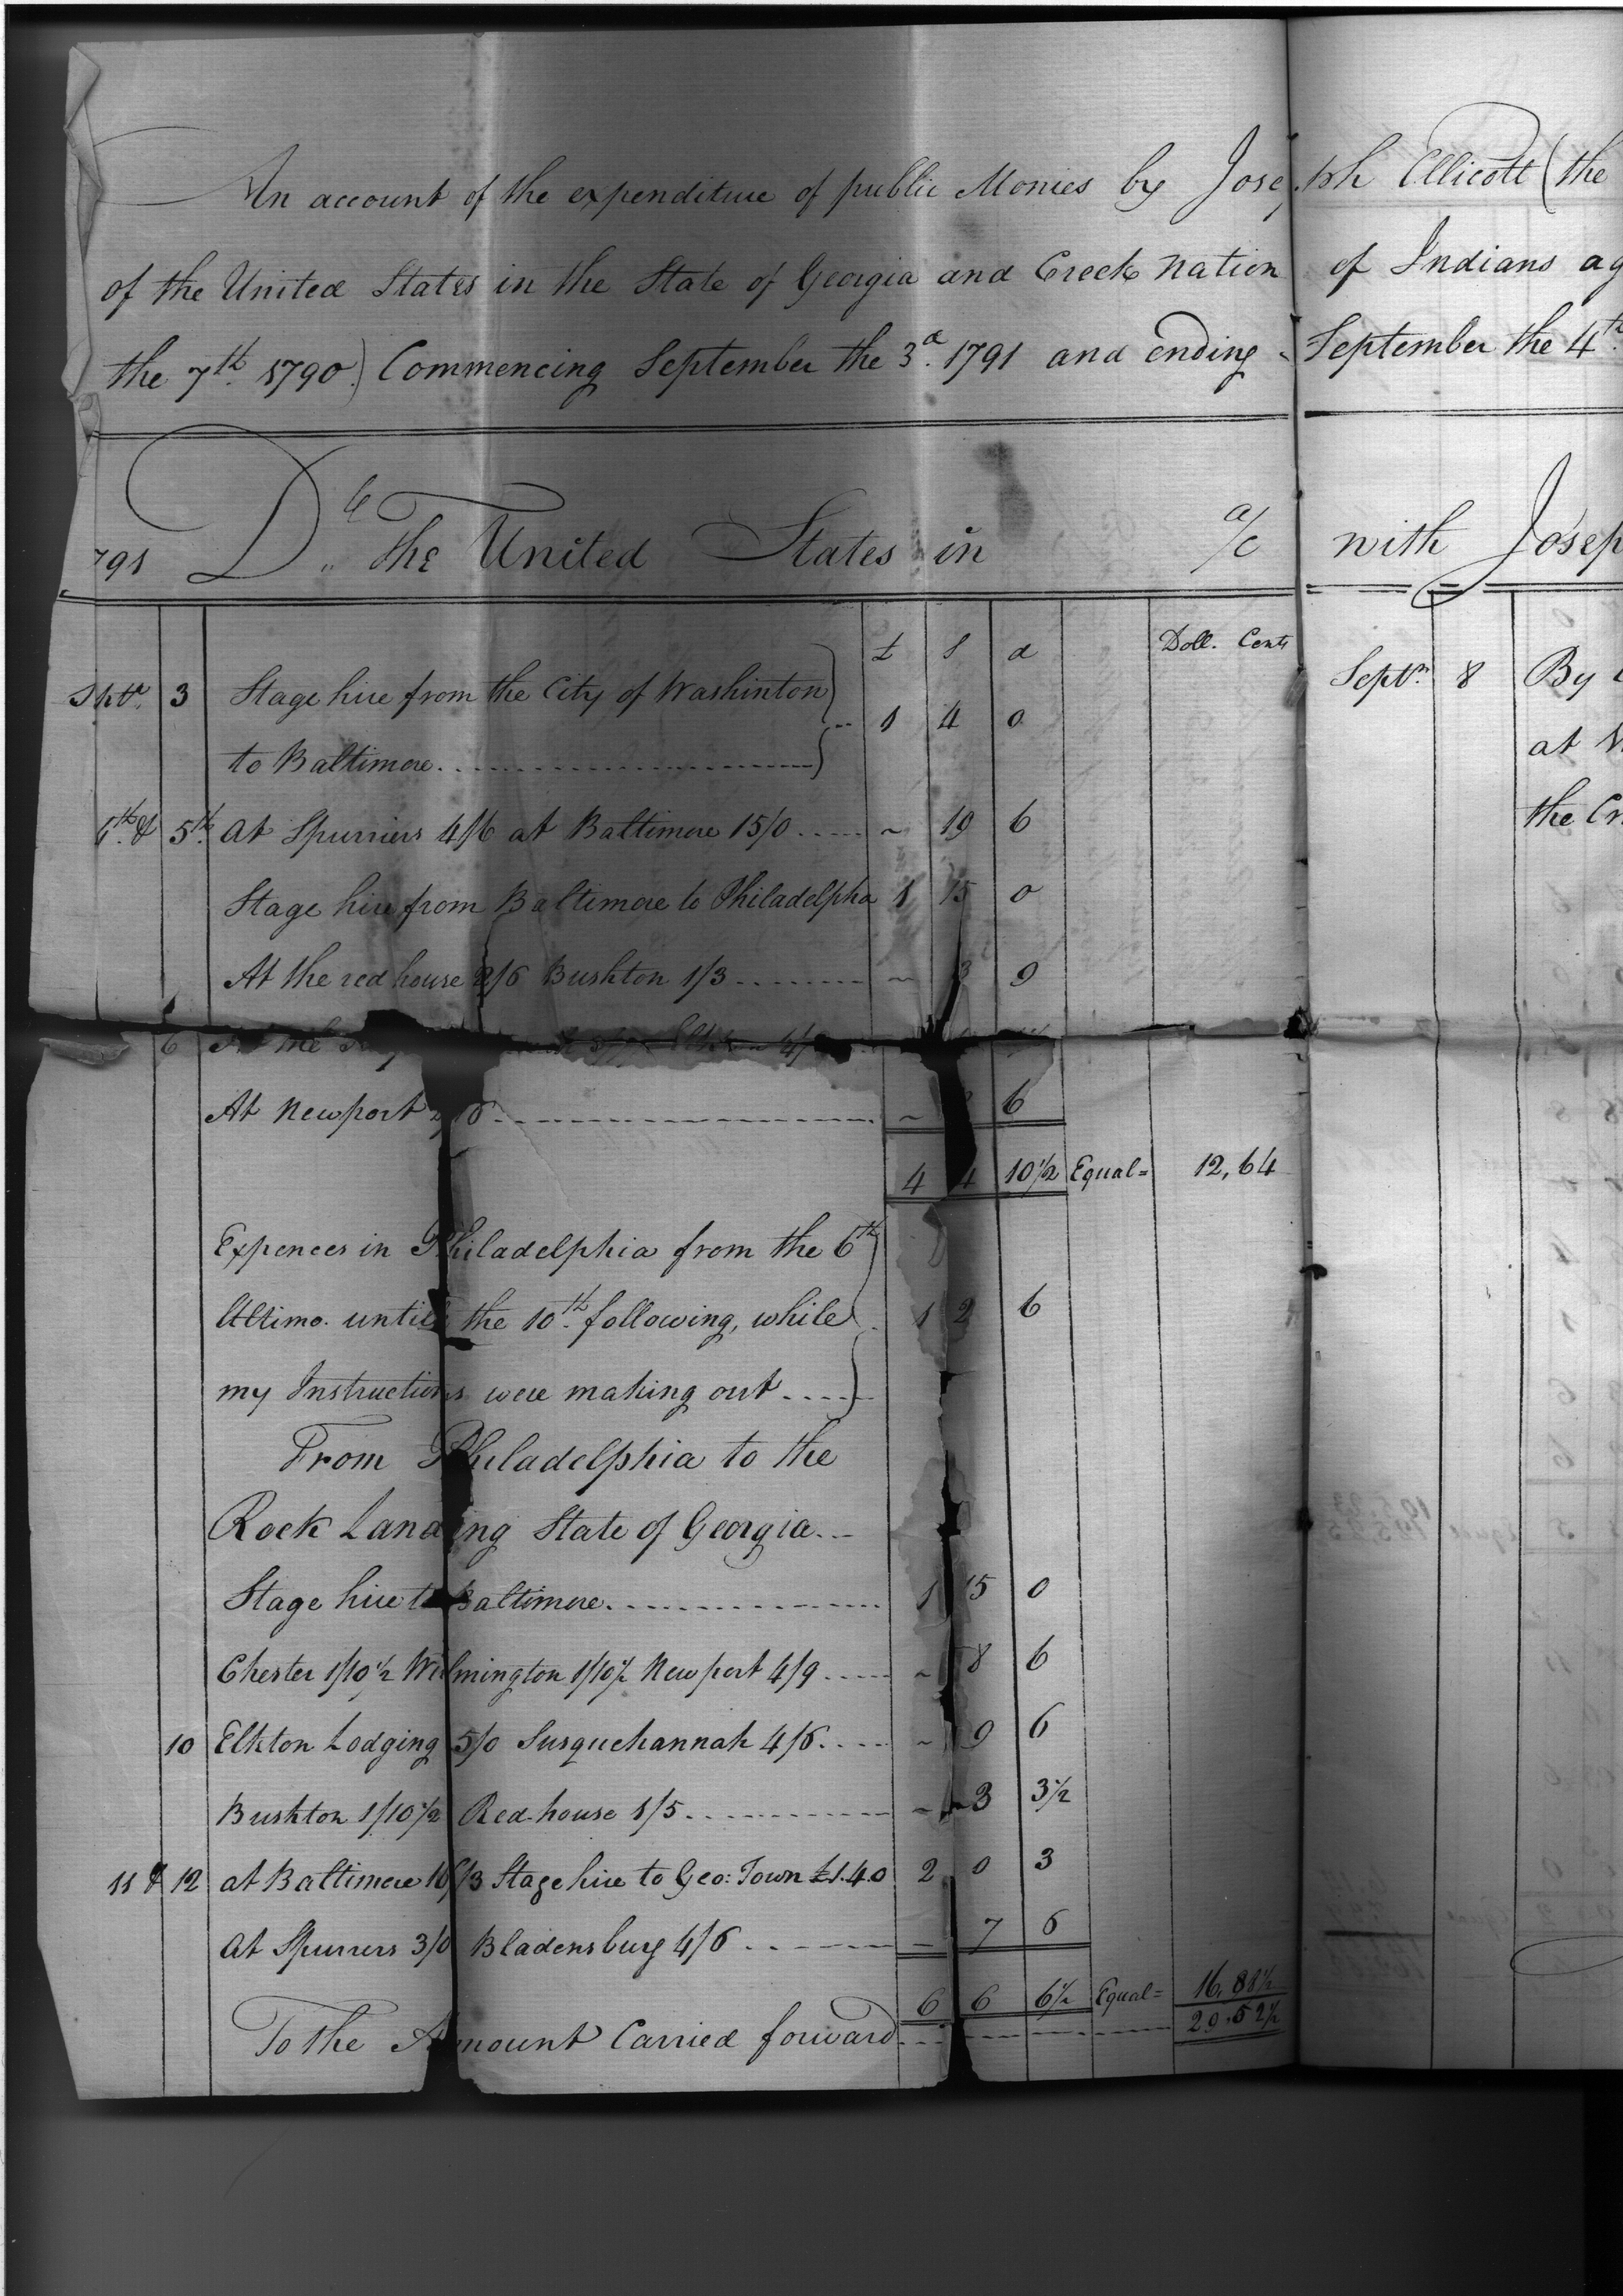 An account of the expenditure of public Monies by Joseph Ellicott (the
of the United States in the State of Georgia and Creek Nation of Indians ag
the 7th. 1790.) Commencing September the 3d. 1791 and ending September the 4th.
791 Dr.. The United States in a/c with Josep
£ S d Doll. Cents
Septr. 3 Stage hire from the City of Washinton
to Baltimore 1 4 0
4th. & 5th. at Spurriers 4/6 at Baltimore 15/0 ~ 19 6
Stage hire from Baltimore to Philadelpha 1 15 0
At the red house 2/6 Bushton 1/3 ~ 3 9
6 At the
At Newport ~ 6
4 4 10 1/2 Equal= 12,64
Expences in Philadelphia from the 6th
Ultimo. until the 10th. following, while 1 2 6
my Instructions were making out
From Philadelphia to the
Rock Landing State of Georgia
Stage hire to Baltimore 1 15 0
Chester 1/10 1/2 Wilmington 1/10 1/2 Newport 4/9 ~ 8 6
10 Elkton Lodging 5/0 Susquehannah 4/6 ~ 9 6
Bushton 1/10 1/2 Red-house 1/5 ~ 3 3 1/2
11 & 12 at Baltimore 16/3 Stage hire to Geo: Town £1.4.0 2 0 3
At Spurrers 3/0 Bladensburg 4/6 7 6
6 6 6 1/2 Equal= 16,88 1/2
To the Amount Carried forward 29.52 1/2
Septr. 8 By
at
the Cr